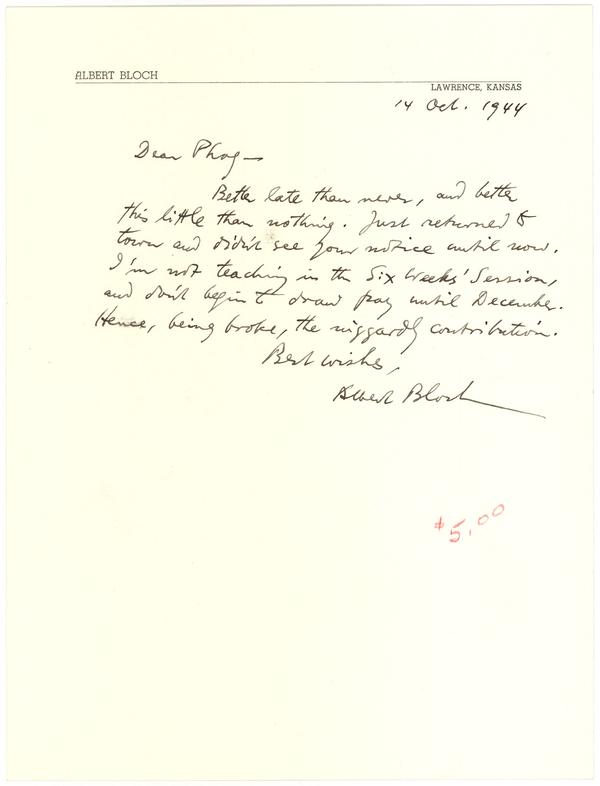 ALBERT BLOCH
LAWRENCE, KANSAS
14 Oct. 1944
Dear Phog—
Better late than never, and better
this little than nothing. Just returned to
town and didn't see your notice until now.
I'm not teaching in the Six Weeks' Session,
and don't begin to draw pay until December.
Hence, being broke, the niggardly contribution.
Best wishes,
Albert Bloch
$5.00